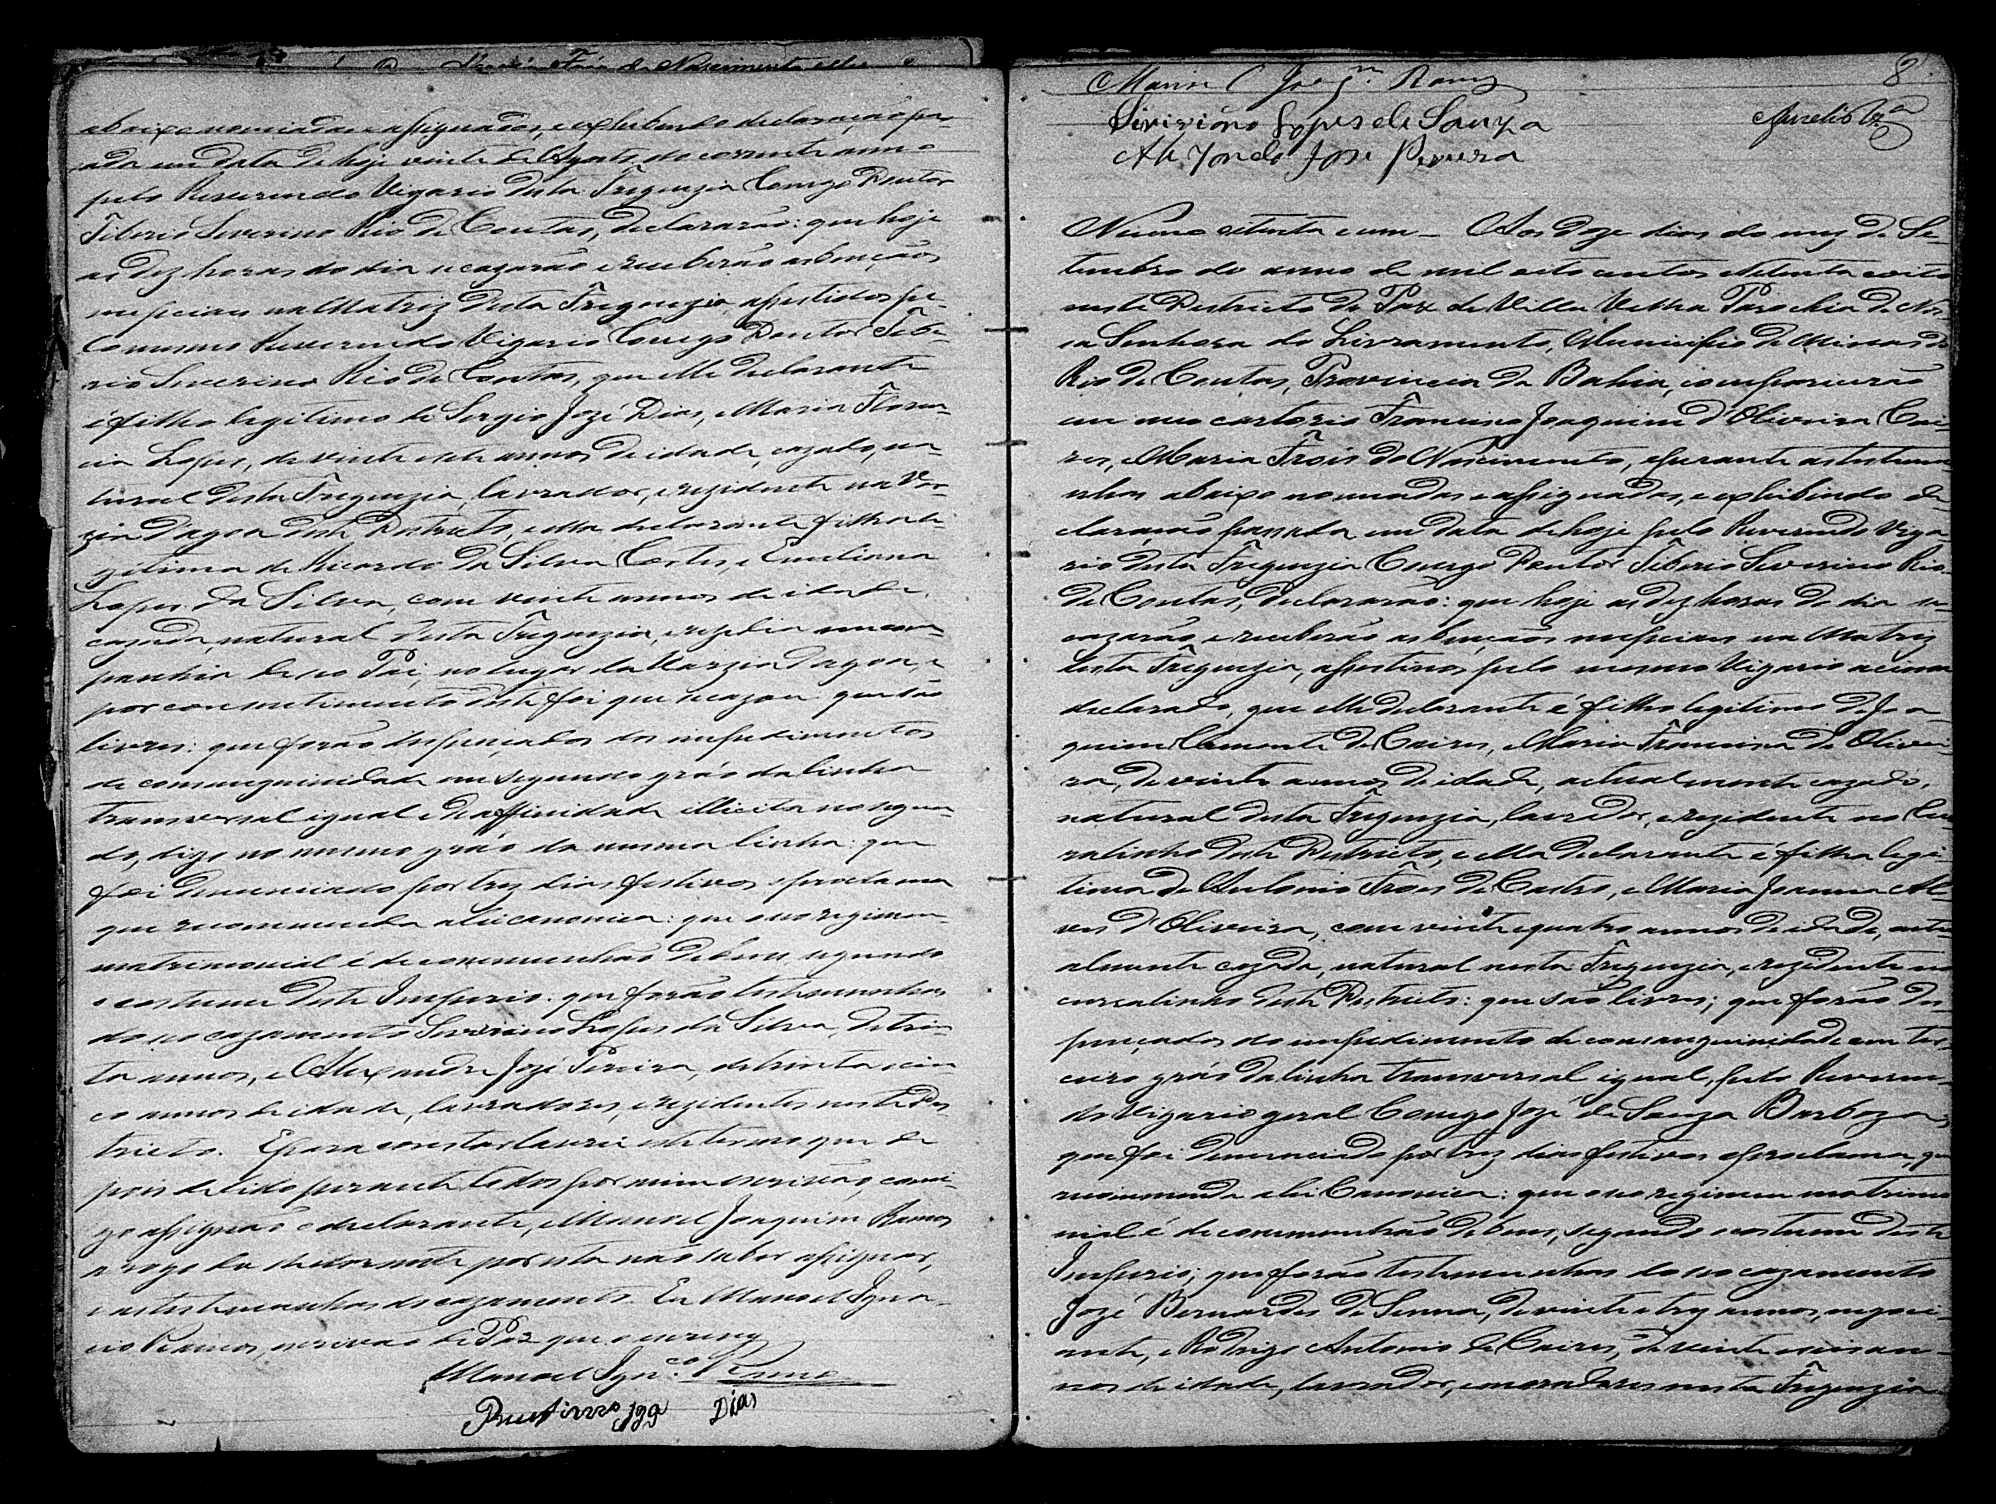 abaixo nomiadas e assignados, e exhibindo declaração pas-
ada em data de hoje vinte de Agosto do corrente anno
pelo Reverendo Vigario desta Freguezia Conego Doutor
Tiberio Severino Rio de Contas, declararão: que hoje
as dez horas do dia se cazarão e receberão as bençãos
nupciais na Matriz desta Freguezia, assistidos pe-
lo mesmo Reverendo Vigario Conego Doutor Tibe-
rio Severino Rio de Contas, que elle declarante
é filho legitimo de Sergio Jozé Dias, e Maria Floren-
cia Lopes, de vinte e sete annos de idade, cazado, na-
tural desta Freguezia, lavrador, e rezidente na Var-
zia d'agoa deste Destricto, e ella declarante filha le-
gitima de Ricardo da Silva Cortes, e Emeliana
Lopes da Silva, com vinte annos de idade,
cazada, natural desta Freguezia, e rezedia em com-
panhia de seo Pai, no lugar da Varzia d'agoa, e
por consentimento deste foi que se cazou que são
livres: que forão despençados dos impedimentos
de consanguinidade em segundo gráo da linha
transversal igual e de affinidade illicita no segun-
do, digo no mesmo gráo da mesma linha: que
foi denunciado por trez dias festivos o proclama
que recommenda a lei canonica: que o seo regimen
matrimonial é de communhão de bens segundo
o costume deste Imperio: que forão testemunhas
do seo cazamento Severino Lopes da Silva, de trin-
ta annos, e Alexandre Jozé Pereira, de trinta e cin
co annos de idade, lavradores, e rezidentes neste Des
tricto. E para constar lavrei este termo que de
pois de lido perante todos por mim escrivão, comi-
go assignão o declarante, e Manoel Joaquim Ramos
a rogo da declarante por esta não saber assignar,
e as testemunhas do cazamento. Eu Manoel Igna-
cio Ramos, escrivão de Paz que o escrevy
Manoel Ignᶜᵒ Ramos
Dias
8
Joaqᵐ Ramos
Siviriano Lopes de Souza
Jose Pereira
Aurelio
Numo setenta e um - Aos doze dias do mez de Se-
tembro do anno de mil oito centos e setenta e oito
neste Destricto de Paz de Villa Velha Parochia de Nos-
sa Senhora do Livramento, Municipio de Minas do
Rio de Contas, Provincia da Bahia, comparecerão
em meo cartorio Francisco Joaquim d'Oliveira Cai-
res, e Maria Fróis do Nascimento, e perante as testemu-
nhas abaixo nomeadas e assignadas, e exhibindo de-
claração passada em data de hoje pelo Reverendo Viga-
rio desta Freguezia Conego Doutor Tiberio Severino Rio
de Contas, declararão: que hoje as dez horas do dia se
cazarão, e receberão as bençãos nupciais na Matriz
desta Freguezia, assistidos pelo mesmo Vigario acima
declarado, que elle declarante é filho legitimo de Joa-
quim Clemente de Caires, e Maria Francisca de Olivei-
ra, de vinte annos de idade, actualmente cazado,
natural desta Freguezia, lavrador, e rezidente no Cur-
ralinho deste Destricto, e ella declarante é filha legi-
tima de Antonio Fróis de Castro, e Maria Joanna Al-
ves d'Oliveira, com vinte e quatro annos de idade, actu-
almente cazada, natural nesta Freguezia, e rezidente no
curralinho deste Destricto: que são livres; que forão des-
pençados do impedimento de consanguinidade em ter-
ceiro gráo da linha transversal igual, pelo Reveren-
do Vigario geral Conego Jozé de Souza Barboza;
que foi denunciado por trez dias festivos o proclama, que
recommenda a lei Canonica: que o seo regimen matrimo
nial é de communhão de bens, segundo o costume deste
Imperio; que forão testemunhas do seo cazamento
Jozé Bernardes de Senna, de vinte e trez annos, negoci-
ante, e Rodrigo Antonio de Caires, de vinte e cinco an-
nos de idade, lavrador, e moradores nesta Freguezia